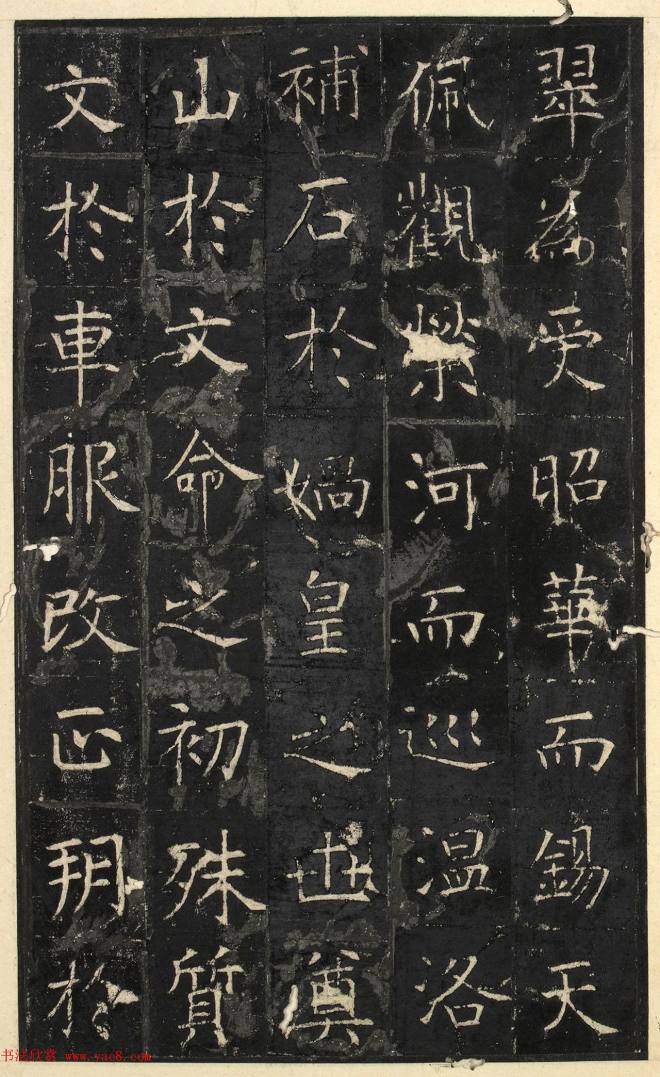 翠為受昭華而錫天
佩觀榮河而巡温洛
補石於媧皇之世奠
山於文命之初殊質
文於車服改正朔於
书法欣赏 www.yac8.com